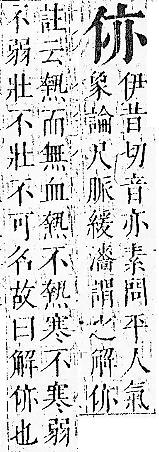 㑊
伊昔切音亦素問平人氣
象論尺脈緩濇謂之解㑊
註云熱而無血熱不熱寒不寒弱
不弱壯不壯不可名故曰解㑊也